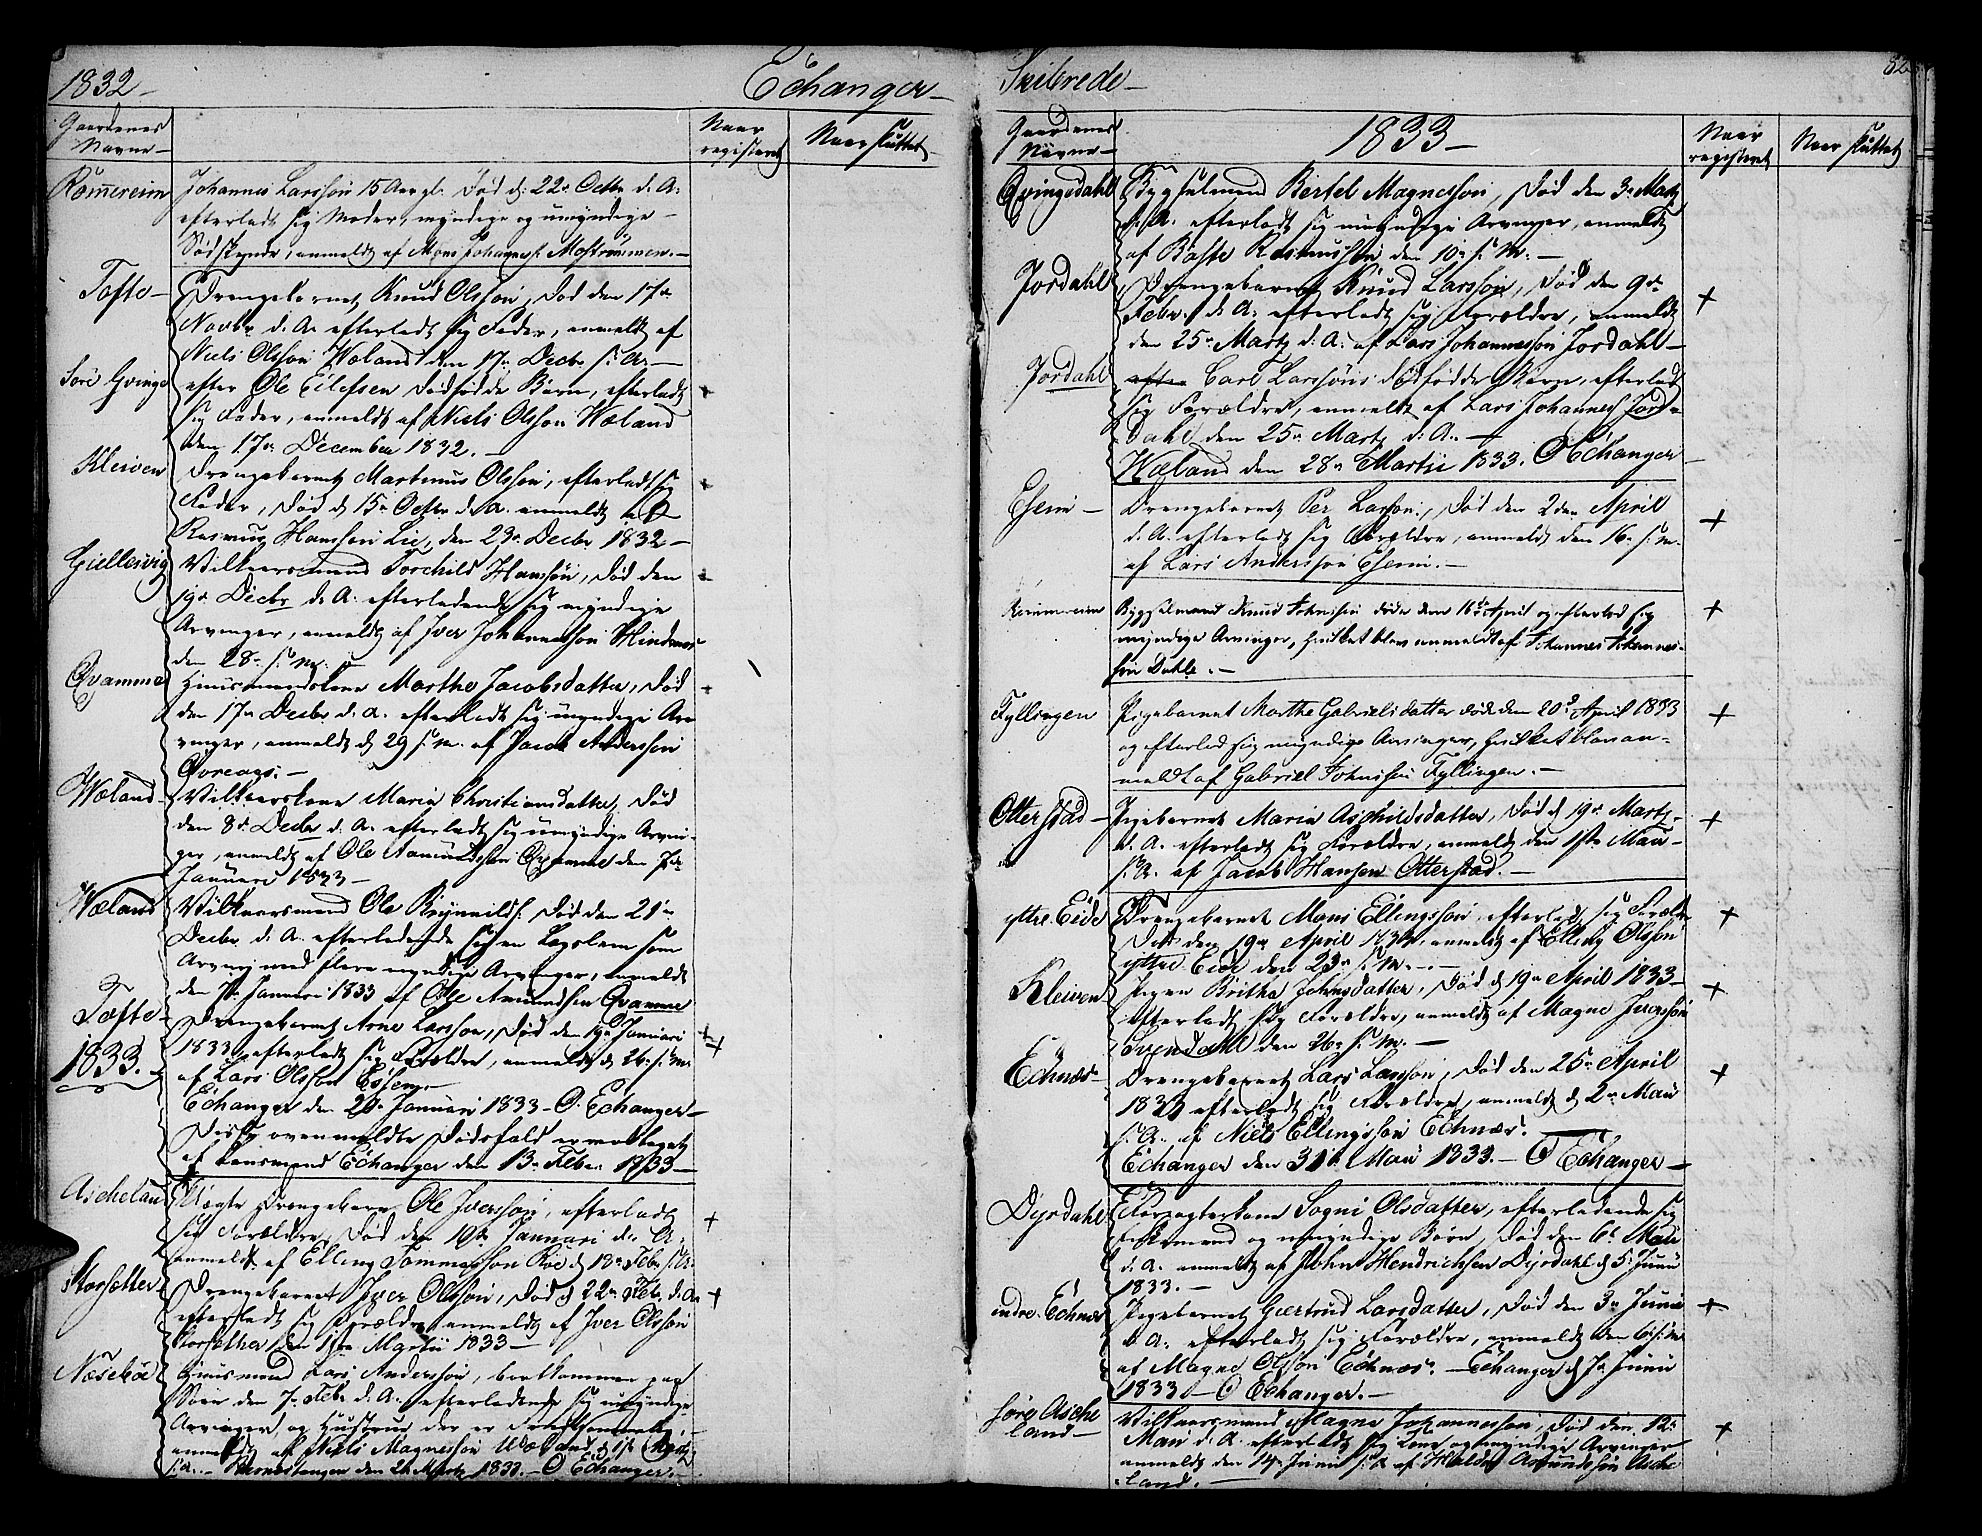 1832 Echanger
Gaardenes Navne
Naar registeret
Naar sluttet
Romereim
Johannes Larssön 15 Aar gl. død d: 22de Octbr d. A.
efterladt sig Moder, myndige og umyndige
Södskende, anmeldt af Mons Johannes. Mostrømmen.
Tofte
Drengebarnet Knud Olssön, død den 17de
Novbr d. A. efterladt sig Fader, anmeldt af
Niels Olssön Wæland den 17de Decbr s. A.
efter Ole Eilefsen dødfødde Børn, efterladt
sig Fader, anmeldt af Niels Olsson Wæland
den 17de December 1832.
Kleiven
Drengebarnet Martinus Olssön, efterladt sig
Fader, død d 15de Octbr d. A. anmeldt af
Rasmus Hanssön Lie, den 23de Decbr 1832
Giellesvig
Vilkaarsmand Torchild Hanssön, død den
19de Decbr d. A. efterladende sig myndige
Arvinger, anmeldt af Iver Johannessön Hindenes
den 28de s. M.
Qvamme
Huusmandskone Marthe Jacobsdatter, død
den 17de Decbr d. A. efterladt sig myndige Ar-
vinger, anmeldt d 29 s. M. af Jacob Anderssön
Wæland
Vilkaarskone Maria Christiansdatter, død
den 8de Decbr d. A. efterladt sig umyndige Arvin-
ger, anmeldt af Ole Aamundssön Qvamme den
Januari 1833
Wæland
Vilkaarsmand Ole Brynnilds. død den 21de
Decbr d. A. efterladende sig en
Arving med flere myndige Arvinger, anmeldt
den Januari 1833 af Ole Amundsen Qvamme
Tofte
1833.
Drengebarnet Arne Larssön, død den 19de Januari
1833 efterladt sig Forældre, anmeldt d 26 s. M.
af Lars Olssön
Echanger den 20de Januari 1833 O. Echanger
Disse ovenmeldte Dødsfald er modtaget
af Lensmand Echanger den 13de Febr. 1833
Aschelan
Drengebarn Ole Iverssön, efterladt
sig Forældre, død den 10de Januari d. A.
anmeldt af Elling Tommesson Røe d 18de Febr. s. A.
Storsetter
Drengebarnet Iver Olssön, død d 22de Febr. d. A.
efterladt sig Forældre, anmeldt af Iver Olssön
Storsether, den 1ste Martii 1833
Næsebøe
Huusmand Lars Anderssön, bortkommen paa
Søen den 7de Febr. d. A. efterladende sig umyndige
Arvinger, og Hustrue der er
anmeldt af Niels Magnessön Wæland
den 21 Martz 1833. O Echanger.
Skibrede
82
Gaardenes Navne
1833
Naar registeret
Naar sluttet
Qvingedahl
Bygselmand Bertel Magnesson, død den 3de Martz
d. A. efterladt sig myndige Arvinger, anmeldt
af Baste Rasmussön den 10de s. M.
Jordahl
Drengebarnet Knud Larssön, død den 9de
Febr. d. A. efterladt sig Forældre, anmeldt
den 25de Martz d. A. af Lars Johannesson Jordahl
Jordahl
efter Carl Larssöns dødfødde Barn, efterladt
sig Forældre, anmeldt af Lars Johannes Jor-
dahl den 25de Martz d. A.
Wæland den 28de Martii 1833. O Echanger
Esem
Drengebarnet Per Larsson, død den 2den April
d. A. efterladt sig Forældre, anmeldt den 16de s. M.
af Lars Anderssön Esem.
Bygselmand Knud Johnssön døde den 16de April og efterlod sig
myndige Arvinger, hvilket blev anmeldt af Johannes Johannes-
sön Dahle.
Fyllingen
Pigebarnet Marthe Gabrielsdatter døde den 20de April 1833
og efterlod sig myndige Arvinger, hvilket blev an-
meldt af Gabriel Johnssön Fyllingen.
Otterstad
Pigebarnet Maria Aschildsdatter, død d 19de Martz
d. A. efterladt sig Forældre, anmeldt den 1ste Mai
s. A. af Jacob Hansen Otterstad.
ytre Eide
Drengebarnet Mons Ellingssön, efterladt sig Foreldre
død den 19de April 1833, anmeldt af Elling Olssön
ytre Eide den 23de s. M.
Kleiven
Pigen Britha Johnsdatter, død d 19de April 1833
efterladt sig Forældre, anmeldt af Magne Iverssön
den 26de s. M.
Echnæs
Drengebarnet Lars Larssön, død den 25de April
1833 efterladt sig Forældre, anmeldt d 2de Mai
s. A. af Niels Ellingssön Echnæs.
Echanger den 31te Mai 1833. O Echanger
Dyrdahl
Sogni Olsdatter, efterladende sig
og umyndige Børn, død den 6te Mai
d. A. anmeldt af John Hendrichsen Dyrdahl d 5 Junii
1833.
indre Echnæs
Pigebarnet Giertrud Larsdatter, død den 3de Junii
d. A. efterladt sig Forældre, anmeldt den 6te s. M.
af Magne Olssön Echnæs. Echanger d 7de Junii
1833 O Echanger.
söre Asche
land
Vilkaarsmand Magne Johannessön, død den 12de
Mai d. A. efterladt sig Kone og myndige Arvinger
anmeldt den 14de Junii s. A af Halder Asche
land.